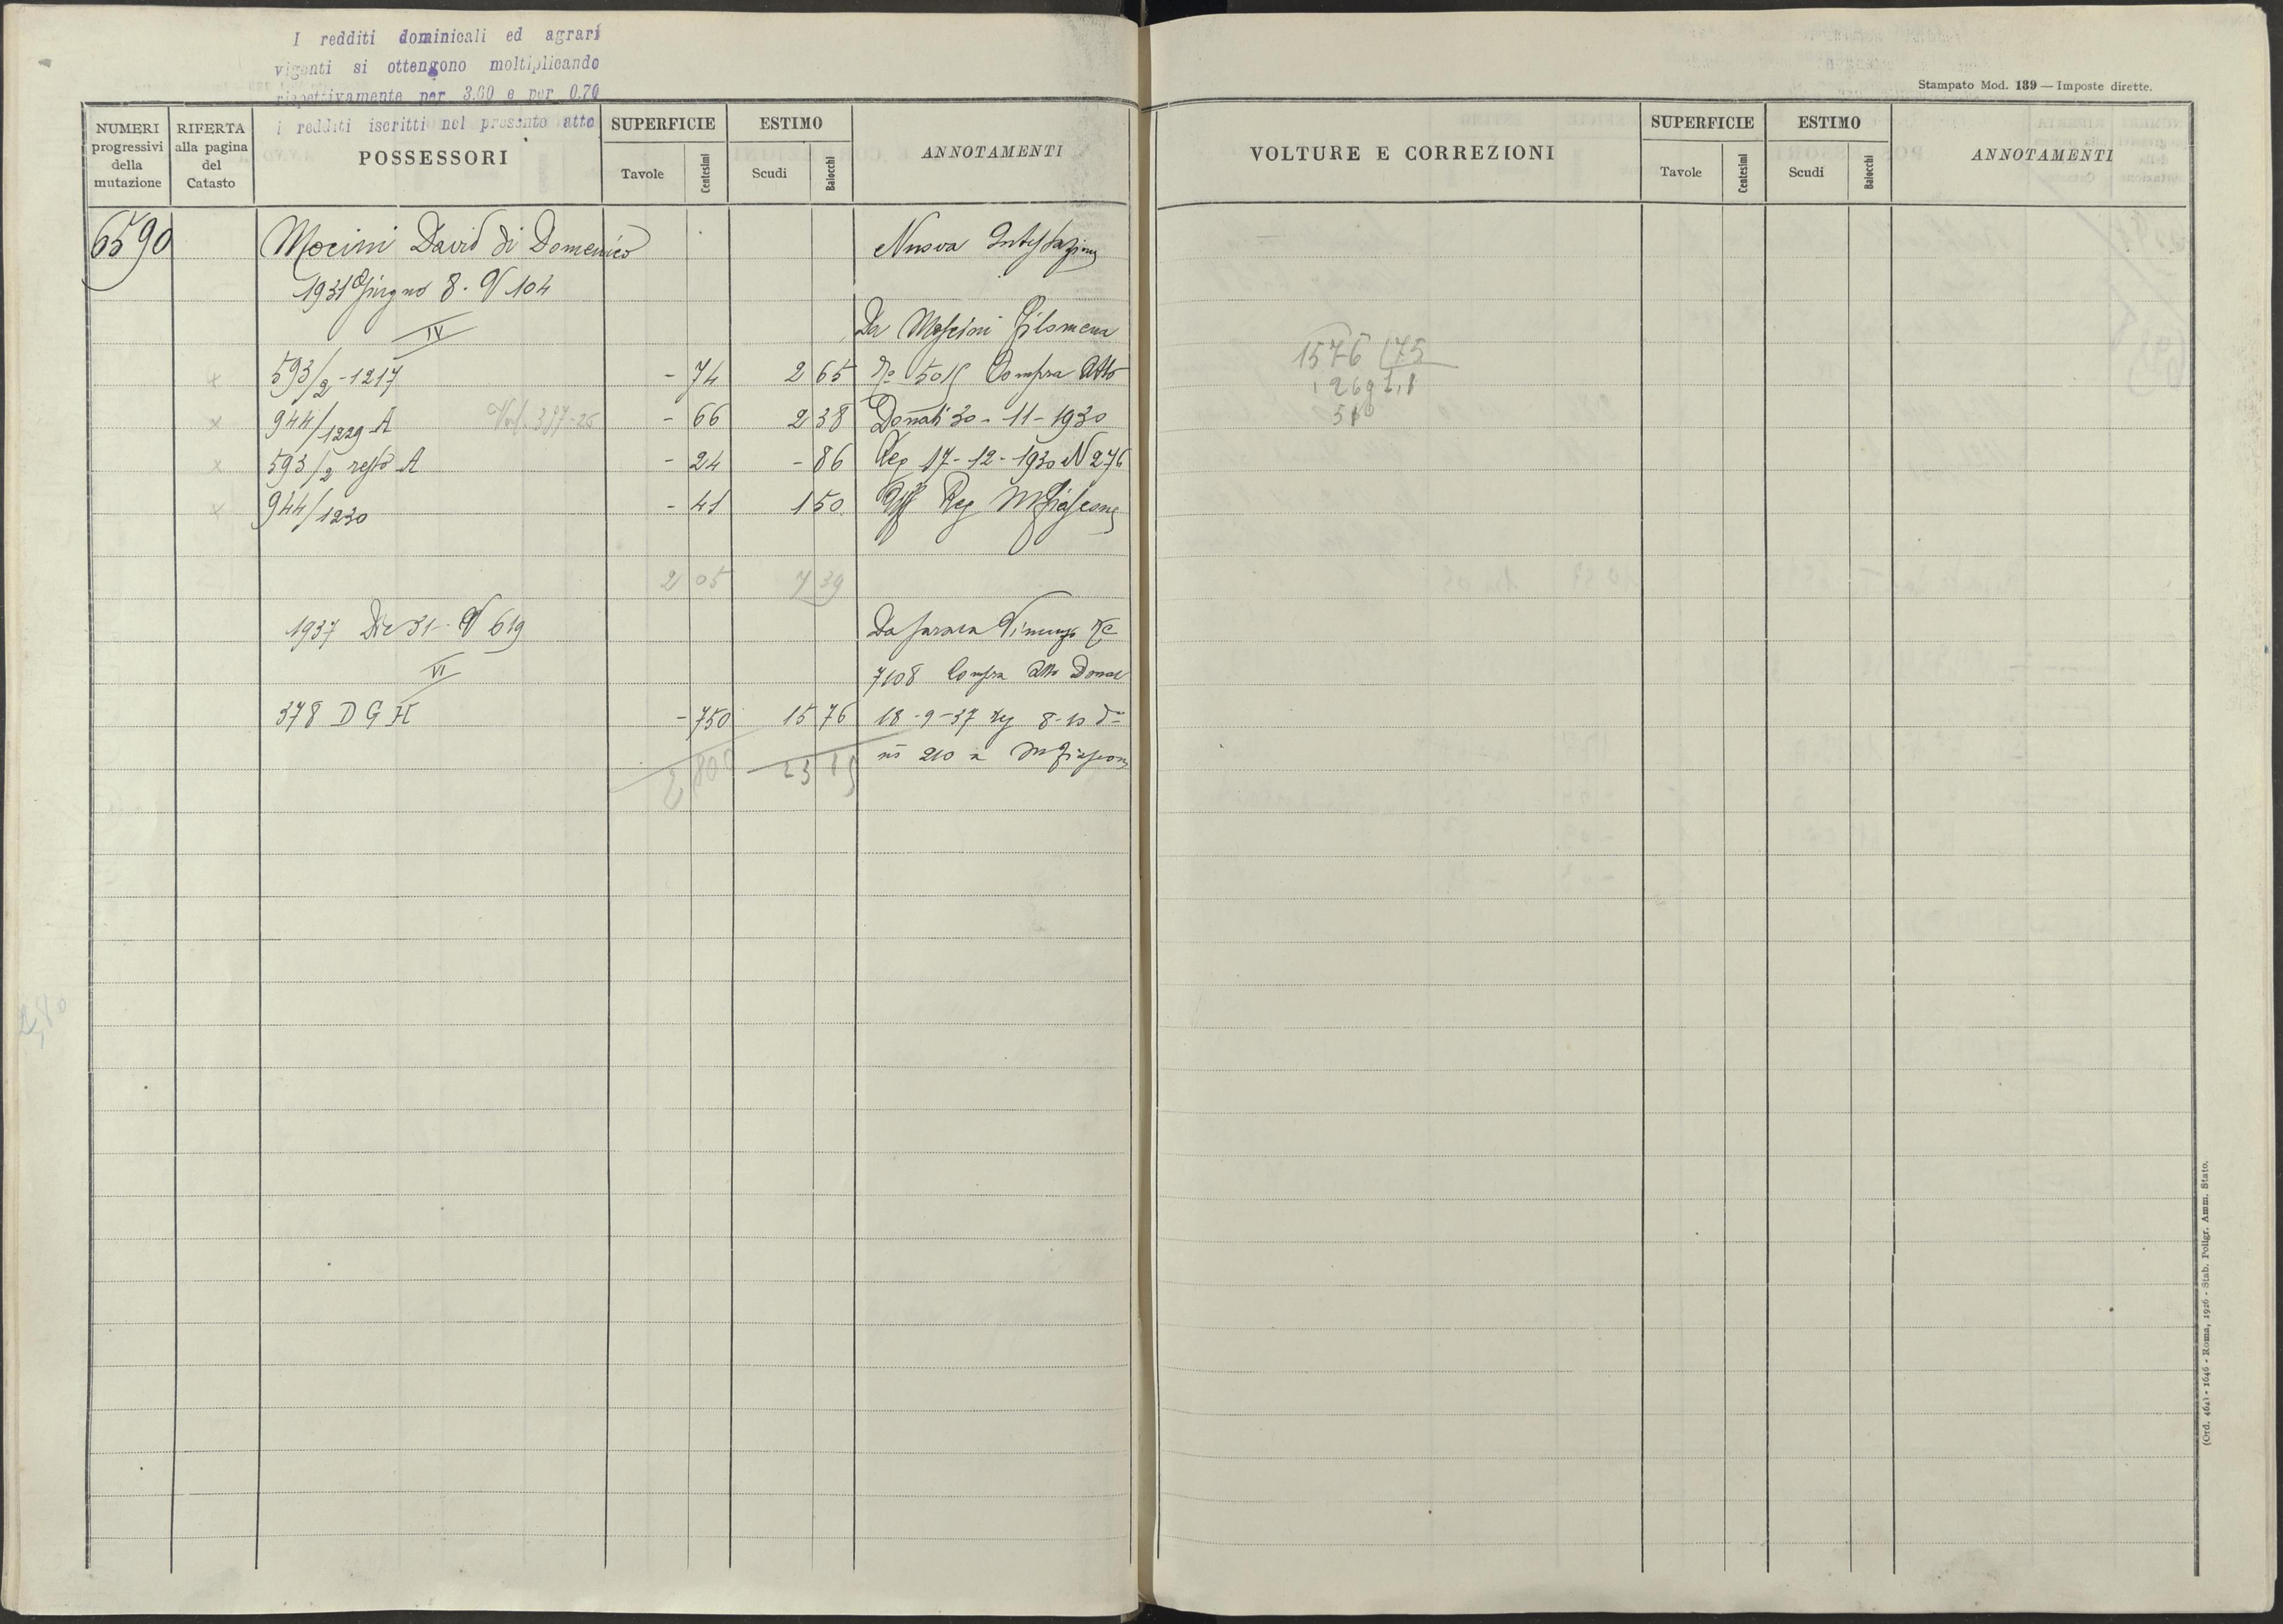 I redditi dominicali ed agrari
vigenti si ottengono moltiplicando
rispettivamente per 3.60 e per 0.70
i redditi iscritti nel presente atto
Stampato Mod. 139 — Imposte dirette.
NUMERI progressivi della mutazione
RIFERTA alla pagina del Catasto
POSSESSORI
SUPERFICIE
Tavole Centesimi
ESTIMO
Scudi Baiocchi
ANNOTAMENTI
6590 Mocini David di Domenico Nuova Intestazione
1931 Giugno 8. V 104
IV Da Filomena
593/2 - 1217 - 74 2 65 Compra Atto
944/1229 A - 66 2 38 Donati 30 - 11 - 1930
593/2 resto A - 24 - 86 Reg 17 - 12 - 1930 N 276
944/1230 - 41 1 50 Uff Reg Mfiascone
2 05 7 39
1937 Dic 31 - V 619 Da
VI 7108 Compra Atto
378 D G H - 750 15 76 18 - 9 - 37 reg 8 - 10 do
23 15 no 210 a Mfiascone
2,80
VOLTURE E CORREZIONI
SUPERFICIE
Tavole Centesimi
ESTIMO
Scudi Baiocchi
ANNOTAMENTI
1576 (75
1269 2,1
510
(Ord. 4641 - 1646 - Roma, 1926 - Stab. Poligr. Amm. Stato.